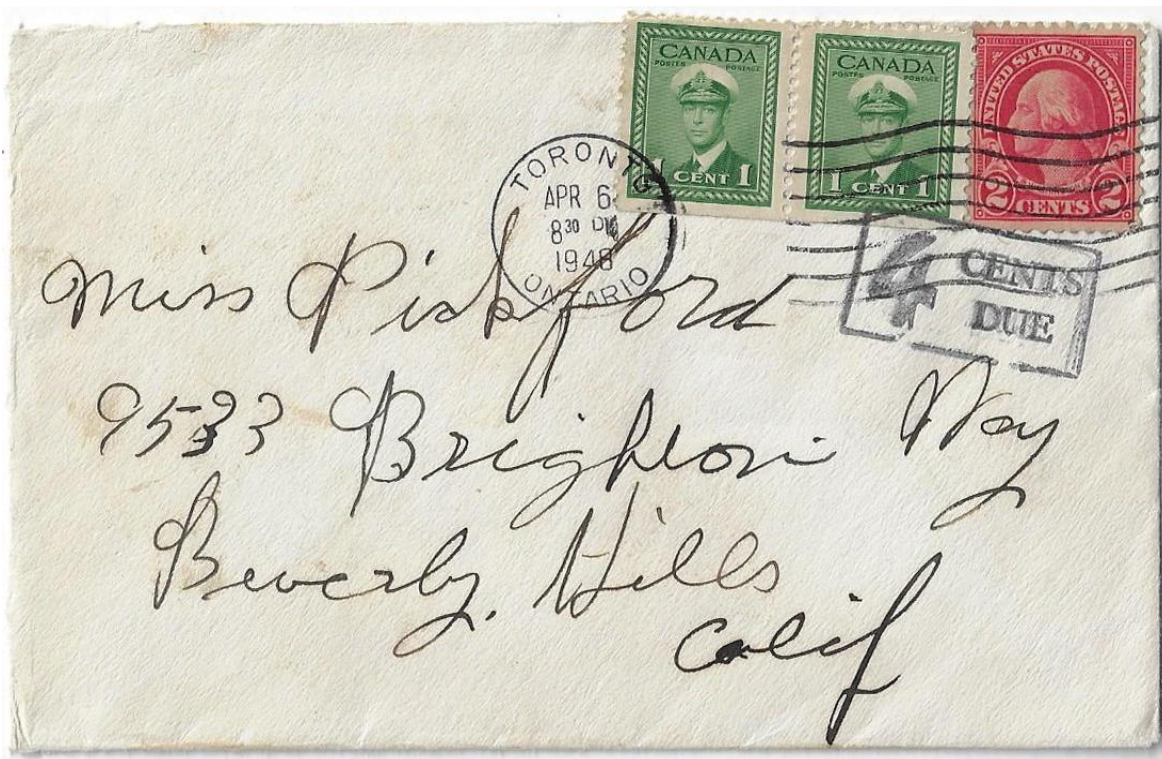 CANADA
POSTES POSTAGE
1 CENT 1
CANADA
POSTES POSTAGE
1 CENT 1
UNITED STATES POSTAGE
2 CENTS 2
TORONTO
APR 6
8 30 PM
1948
ONTARIO
4 CENTS
DUE
Miss Pickford
9533 Brighton Way
Beverly, Hills
Calif